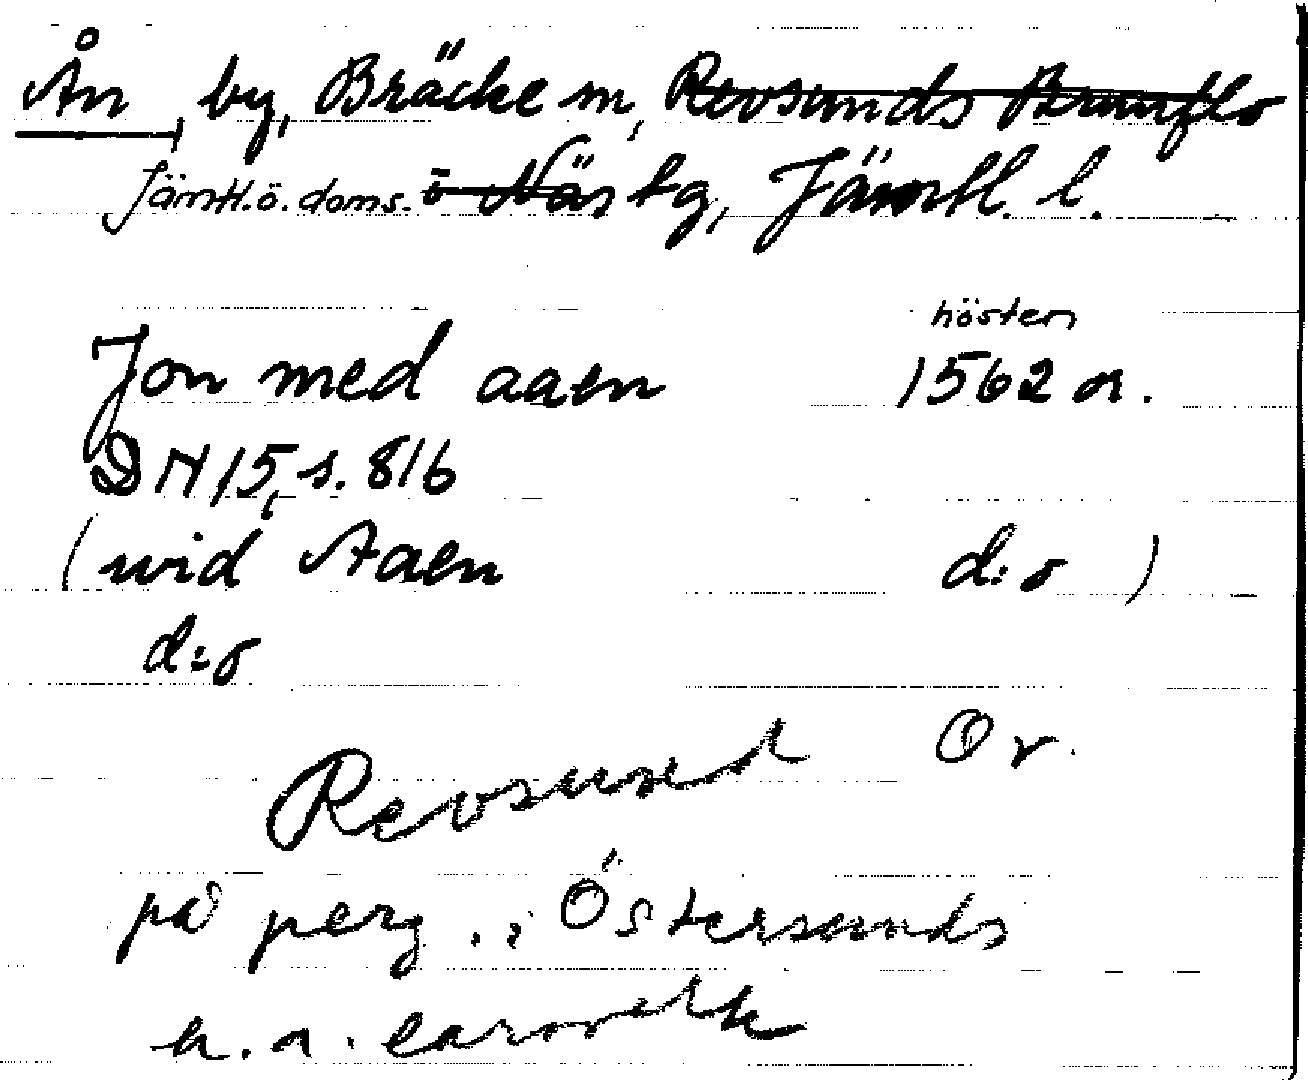 Ån, by, Bräcke sn, Revsunds Brunflo
Jämtl. ö. doms. o Näs tg, Jämtl. l.
hösten
Jon med aaen 1562 n.
DN 15, s. 816
(wid Aaen d:o )
d:o
Revsund Or.
på perg. i Östersunds
h. a. läroverk